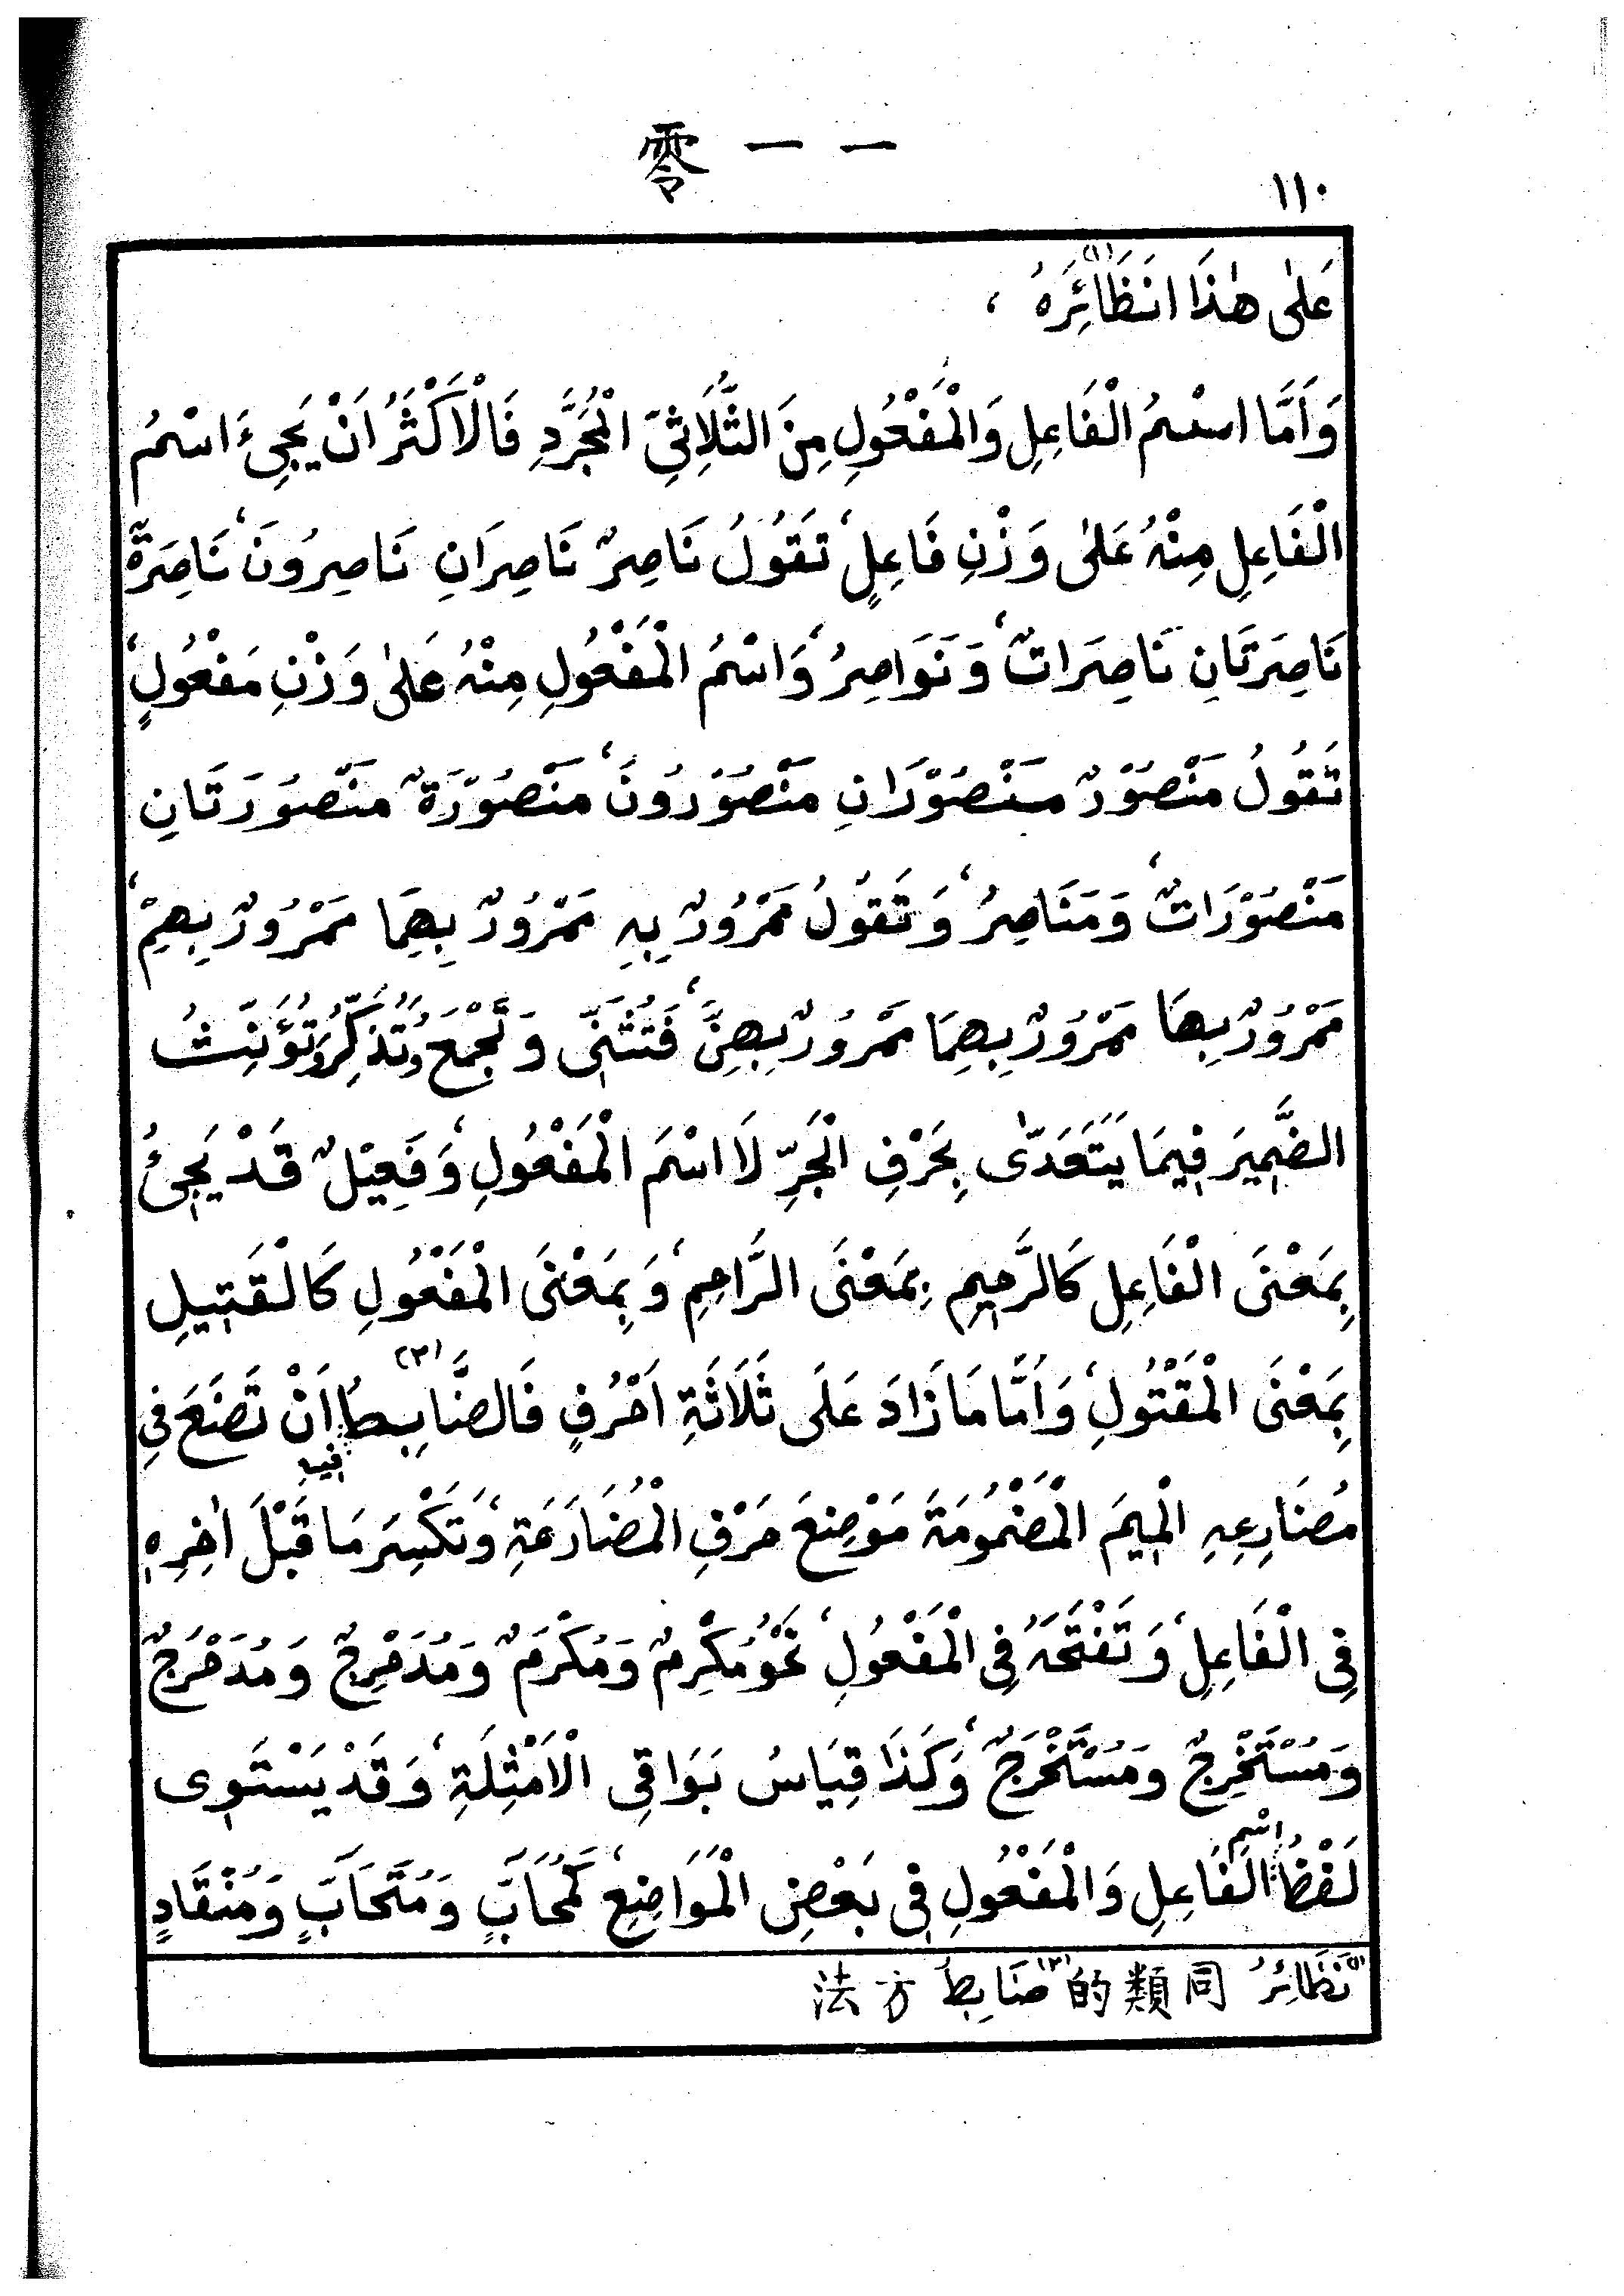 零 一 一
١١٠
عَلىٰ هٰذَا انَظَائِرَهُ ،
وَاَمَّا اسْمُ الْفَاعِلِ وَالْمَفْعُولِ مِنَ الثُّلَاثِيِّ الْمُجَرَّدِ فَالْاَكْثَرُ اَنْ يَجِئَ اسْمُ
الْفَاعِلِ مِنْهُ عَلىٰ وَزْنِ فَاعِلٍ، تَقُولُ نَاصِرٌ نَاصِرَانِ نَاصِرُونَ، نَاصِرَةٌ
نَاصِرَتَانِ نَاصِرَاتٌ، وَنَوَاصِرُ، وَاسْمُ الْمَفْعُولِ مِنْهُ عَلىٰ وَزْنِ مَفْعُولٍ،
تَقُولُ مَنْصُوْرٌ مَنْصُوْرَانِ مَنْصُوْرُونَ، مَنْصُوْرَةٌ مَنْصُورَتَانِ
مَنْصُوْرَاتٌ، وَمَنَاصِرُ، وَتَقُولُ مَمْرُورٌ بِهِ مَمْرُورٌ بِهِمَا مَمْرُورٌ بِهِمْ،
مَمْرُورٌ بِهَا مَمْرُورٌ بِهِمَا مَمْرُورٌ بِهِنَّ، فَتُثَنِّى وَتَجْمَعُ وَتُذَكِّرُ وَتُؤَنِّثُ
الضَّمِيرَ فِيمَا يَتَعَدّٰى بِحَرْفِ الْجَرِّ لَا اسْمَ الْمَفْعُولِ، وَفَعِيْلٌ قَدْ يَجِئُ
بِمَعْنَى الْفَاعِلِ كَالرَّحِيمِ بِمَعْنَى الرَّاحِمِ، وَبِمَعْنَى الْمَفْعُولِ كَالْقَتِيلِ
بِمَعْنَى الْمَقْتُولِ، وَاَمَّا مَا زَادَ عَلَى ثَلَاثَةِ اَحْرُفٍ فَالضَّابِطُ (٢) فِيهِ اَنْ تَضَعَ فِي
مُضَارِعِهِ الْمِيمَ الْمَضْمُومَةَ مَوْضِعَ حَرْفِ الْمُضَارَعَةِ، وَتَكْسِرَ مَا قَبْلَ اٰخِرِهِ
فِي الْفَاعِلِ، وَتَفْتَحَهُ فِي الْمَفْعُولِ، نَحْوُ مُكْرِمٌ وَمُكْرَمٌ وَمُدَحْرِجٌ وَمُدَحْرَجٌ
وَمُسْتَخْرِجٌ وَمُسْتَخْرَجٌ، وَكَذَا قِيَاسُ بَوَاقِي الْاَمْثِلَةِ، وَقَدْ يَسْتَوِى
لَفْظُ اسْمِ الْفَاعِلِ وَالْمَفْعُولِ فِي بَعْضِ الْمَوَاضِعِ، كَمُحَابٍّ وَمُتَحَابٍّ وَمُنْقَادٍ
(١) نَظَائِرُ 同類的 (٢) ضَابِطُ 方法